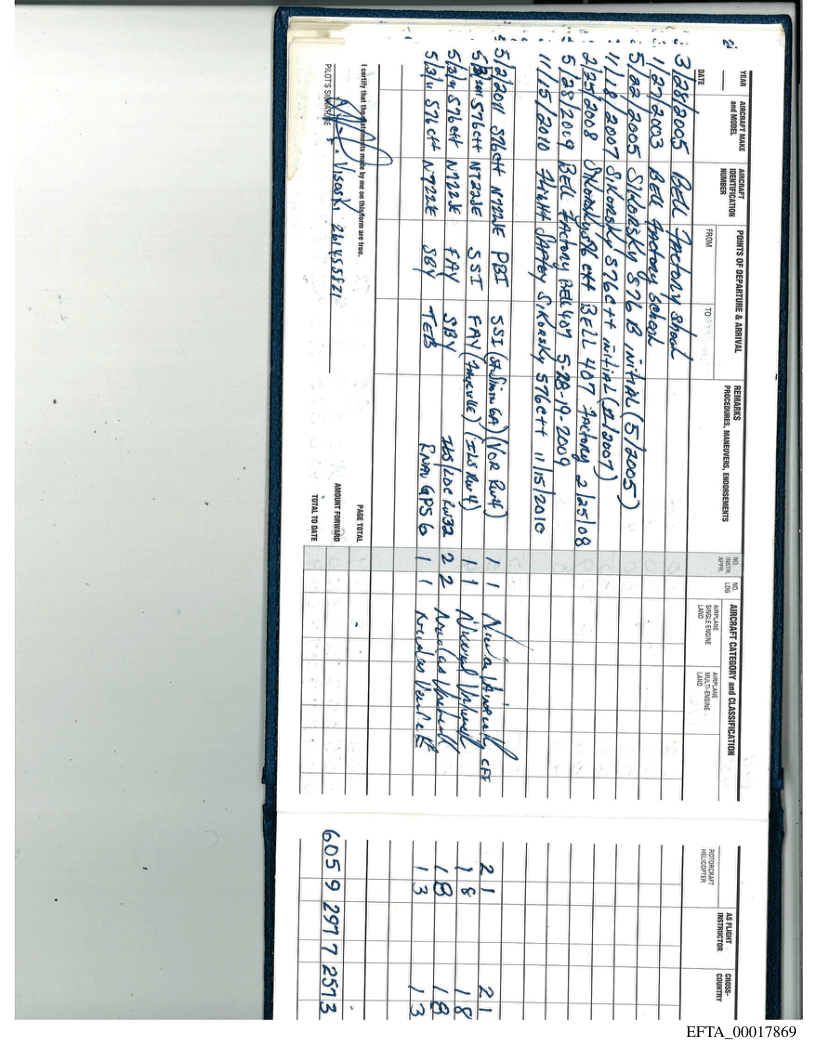 YEAR
DATE
AIRCRAFT MAKE and MODEL
AIRCRAFT IDENTIFICATION NUMBER
POINTS OF DEPARTURE & ARRIVAL
FROM
TO
REMARKS
PROCEDURES, MANEUVERS, ENDORSEMENTS
NO. INSTR. APPR.
NO. LDG
AIRCRAFT CATEGORY and CLASSIFICATION
AIRPLANE SINGLE ENGINE LAND
AIRPLANE MULTI-ENGINE LAND
ROTORCRAFT HELICOPTER
AS FLIGHT INSTRUCTOR
CROSS-COUNTRY
3/28/2005 BELL Factory School
1/27/2003 BELL Factory School
5/22/2005 SIKORSKY S76 B initial (5/2005)
11/18/2007 SIKORSKY S76C++ initial (11/2007)
2/25/2008 SIKORSKY S76 C++ BELL 407 Factory 2/25/08
5/28/2009 BELL Factory BELL 407 5-28-19-2009
11/15/2010 Flight SAFETY SIKORSKY S76C++ 11/15/2010
5/2/2011 S76C++ N722JE PBI SSI (St Simon GA) (VOR Rw4) 1 1 CFI 2 1 2 1
5/2/2011 S76C++ N722JE SSI FAY (Fayeville) (ILS Rw4) 1 1 1 8 1 8
5/2/11 S76C++ N722JE FAY SBY ILS/LOC Rw32 2 2 1 8 1 8
5/3/11 S76C++ N722JE SBY TEB RNAV GPS 6 1 1 1 3 1 3
I certify that the statements made by me on this form are true.
PILOT'S SIGNATURE Visoski 261455821
PAGE TOTAL
AMOUNT FORWARD
TOTAL TO DATE
6059 2977 2573
EFTA_00017869